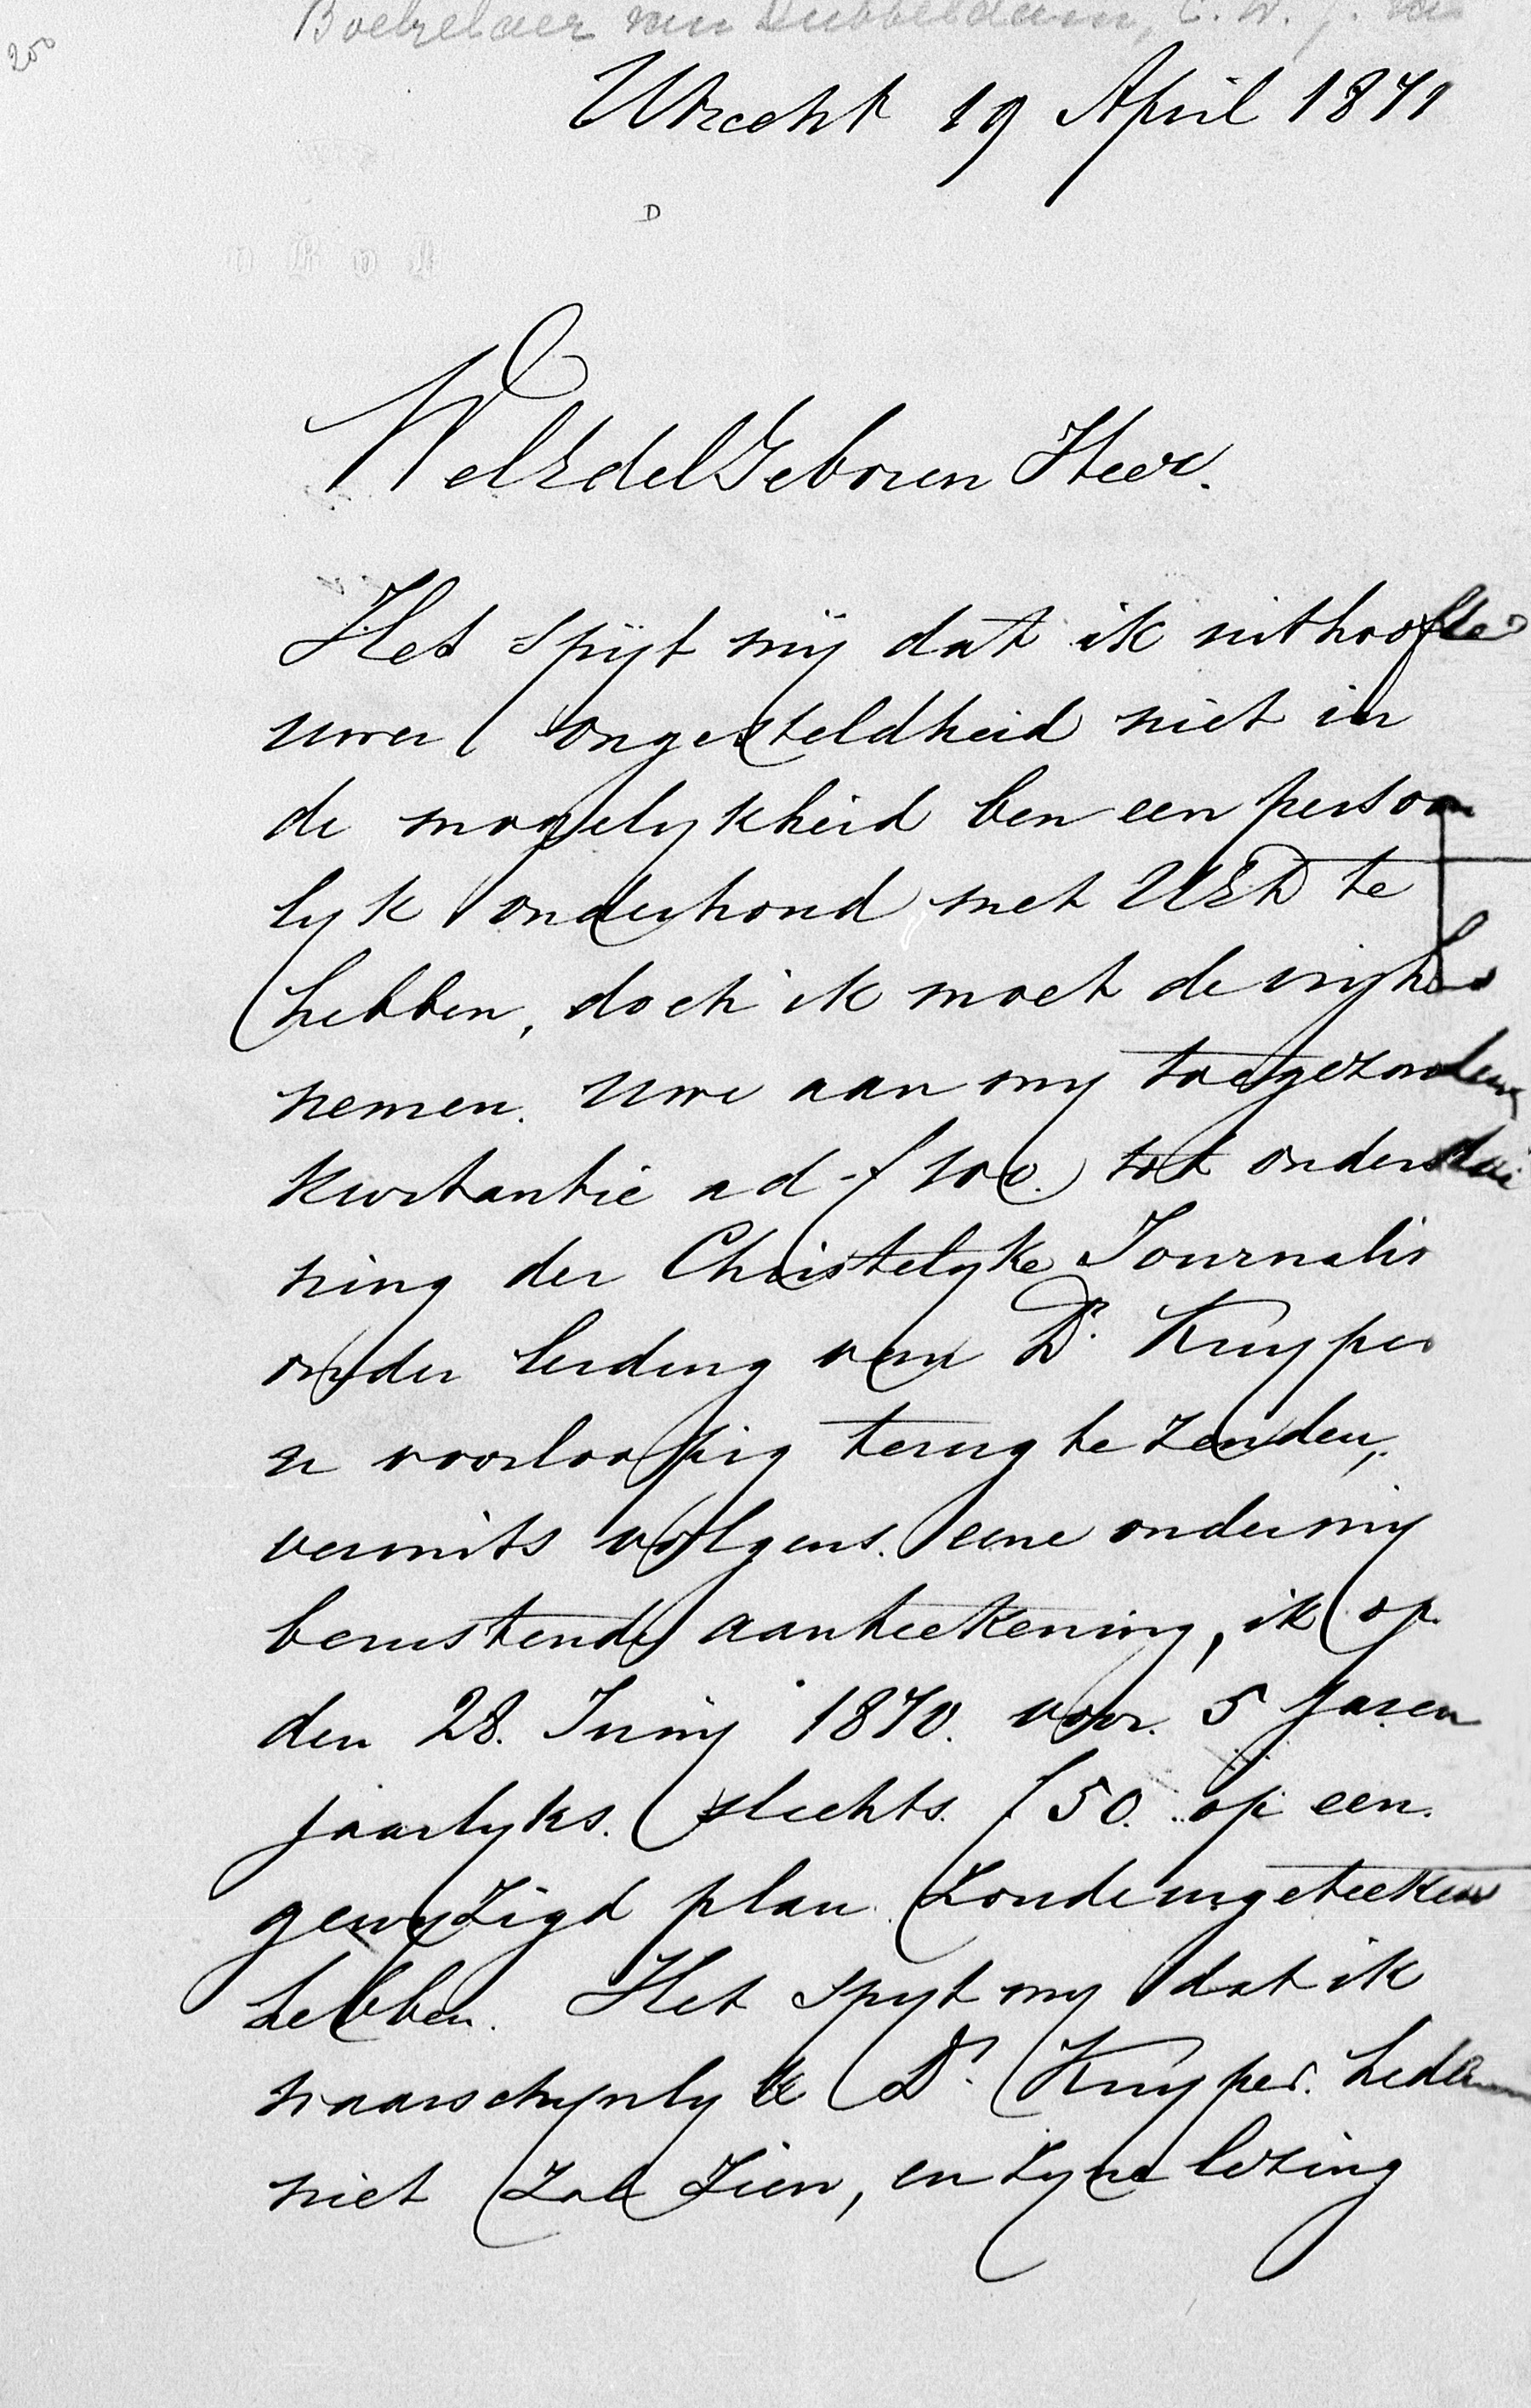 Boetzelaer van Dubbeldam, C. W. J. van
250
Utrecht 19 April 1871
D
WelEdelGeboren Heer.
Het spijt mij dat ik uithoofde
uwer ongesteldheid niet in
de mogelykheid ben een persoon
lyk onderhoud met UEd te
hebben, doch ik moet de vryheid
nemen. uwe aan my toegezonden
kwitantie ad f 100. tot ondersteu
ning der Christelyke Journalis
onder leiding van Dr. Kuyper
u voorloopig terug te zenden,
vermits volgens. eene onder my
berustende aanteekening, ik op
den 28. Juny 1870. voor. 5 Jaren
jaarlyks. slechts. f 50. op een.
gewyzigd plan. Zoude ingeteekend
hebben. Het spyt my dat ik
waarschynlyk Dr. Kuyper. heden
niet zal zien, en zyne lezing